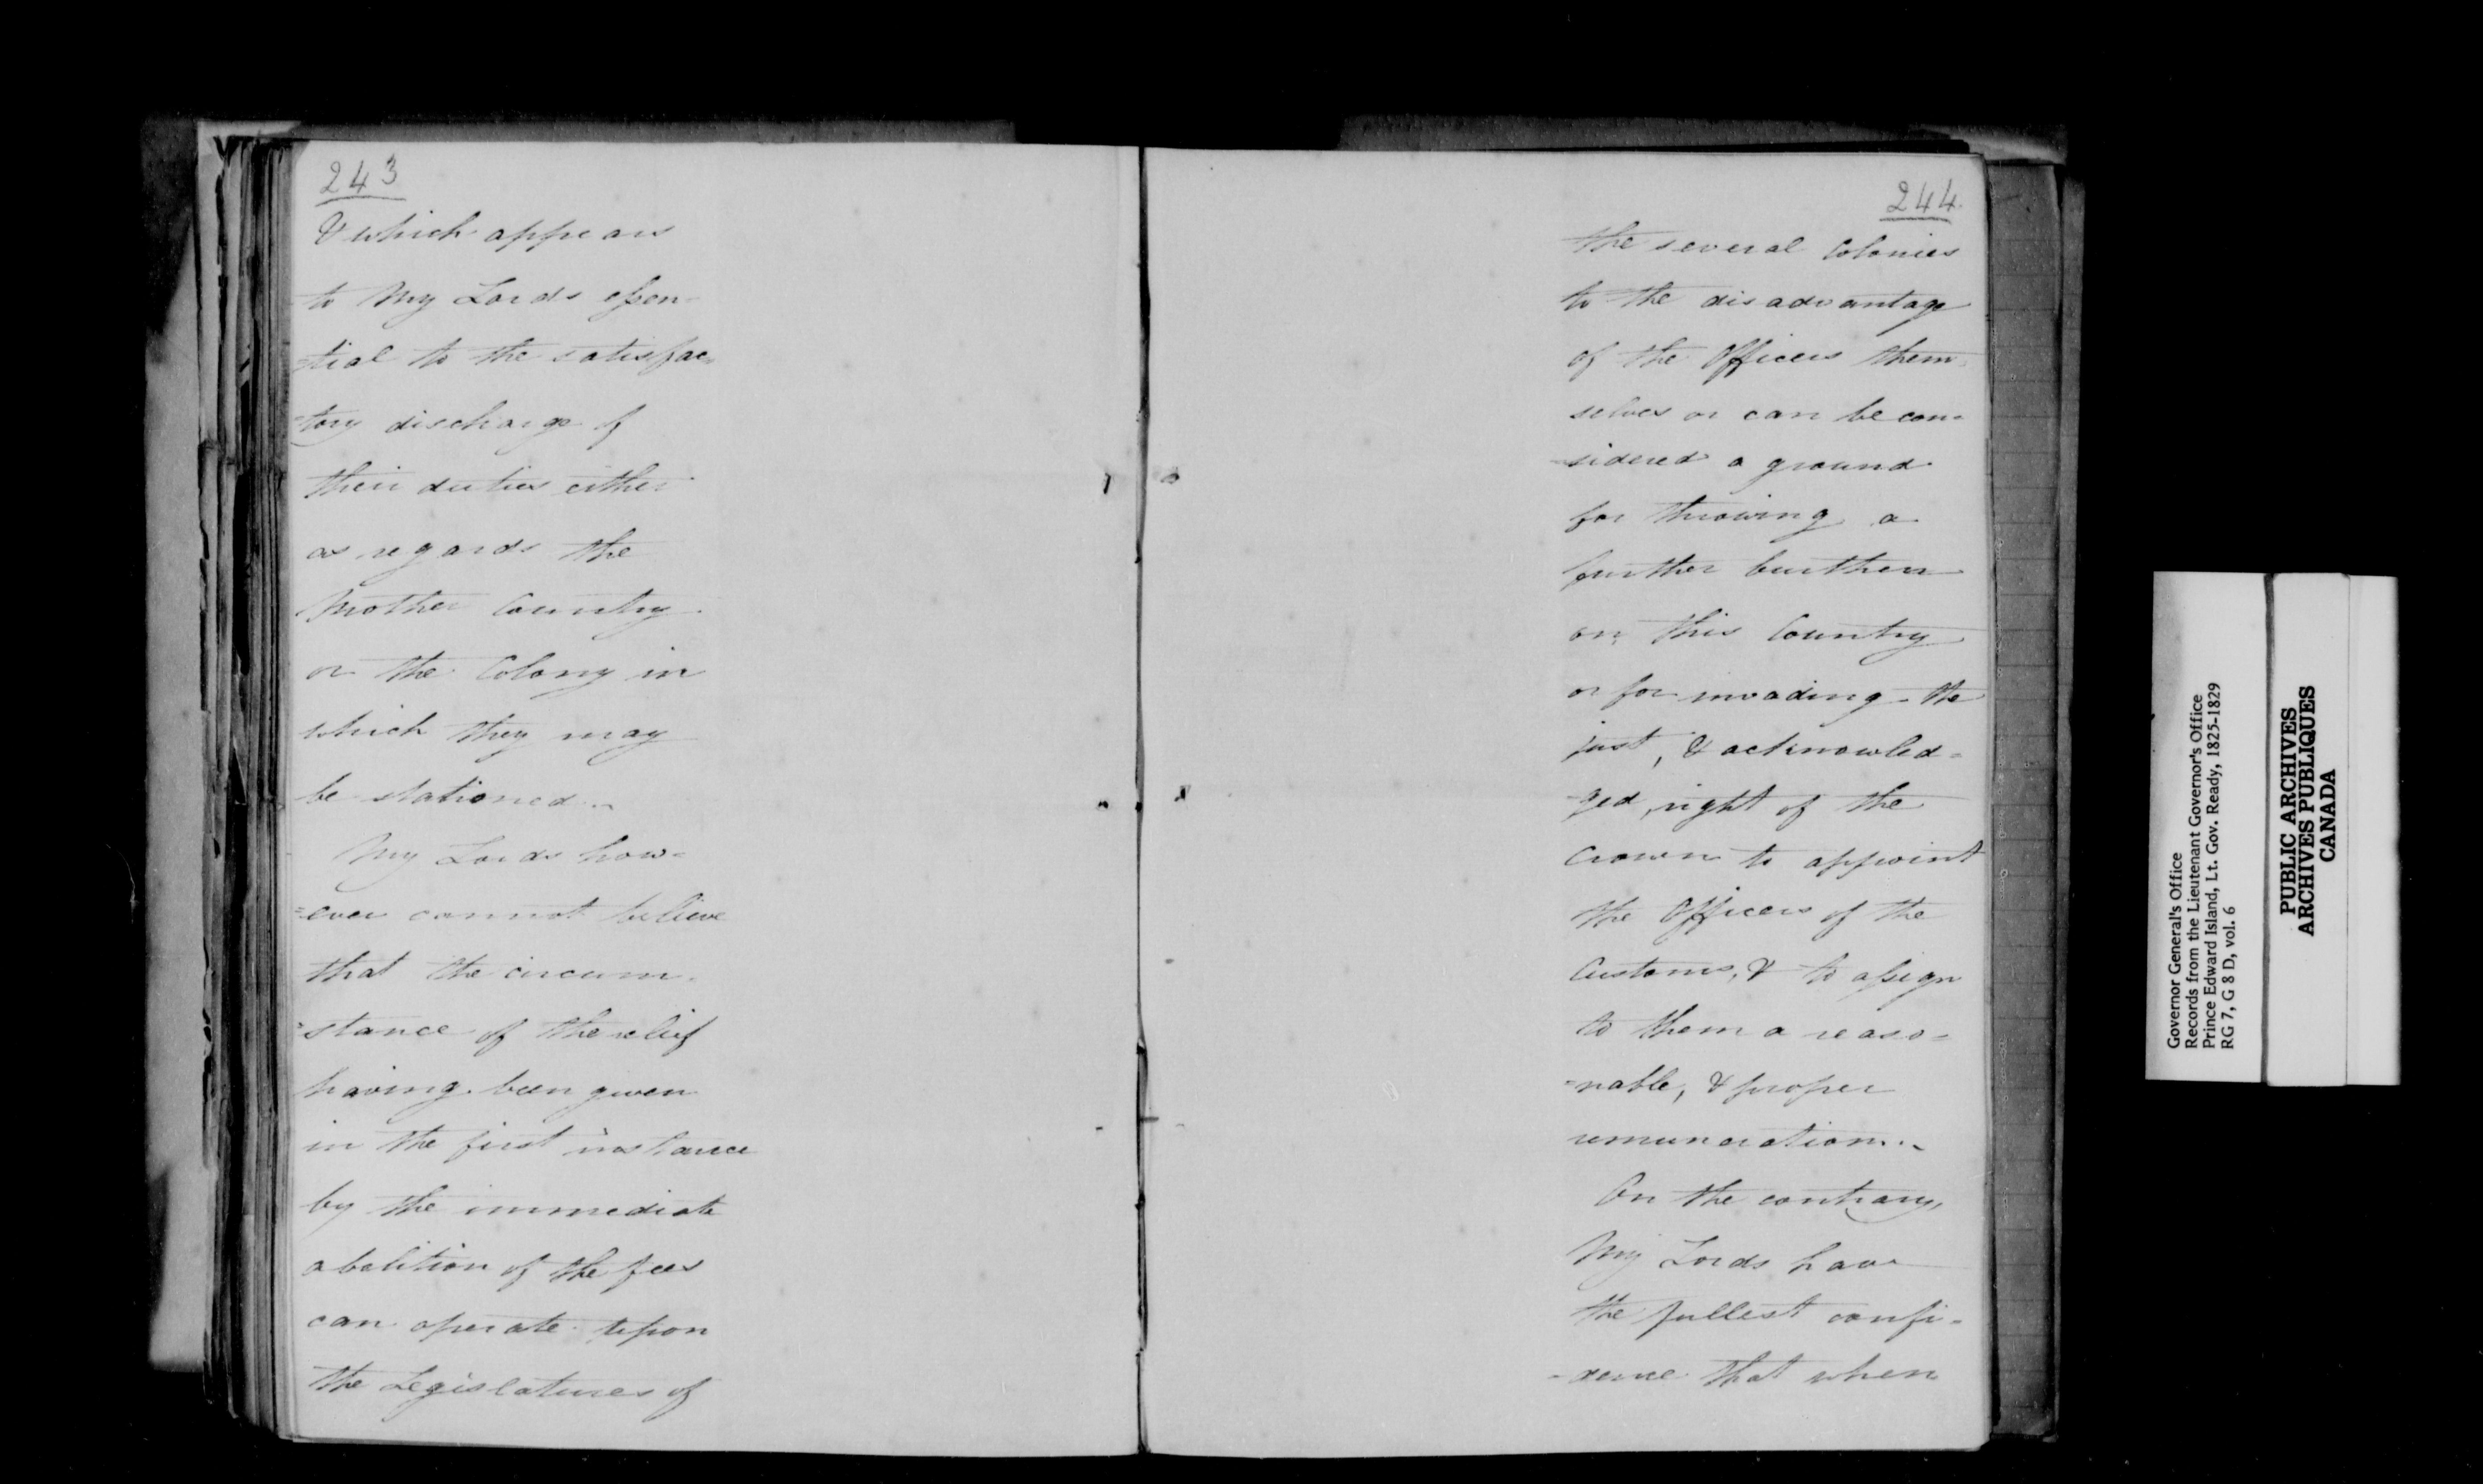 243
& which appears
to My Lords essen-
-tial to the satisfac-
-tory discharge of
their duties either
as regards the
Mother Country
or the Colony in
which they may
be stationed..
My Lords how-
=ever cannot believe
that the circum-
=stance of the relief
having been given
in the first instance
by the immediate
abolition of the fees
can operate upon
the Legislatures of
244.
the several Colonies
to the disadvantage
of the Officers them-
selves or can be con-
-sidered a ground
for throwing a
further burthen
on this Country
or for invading the
just, & acknowled-
-ged, right of the
Crown to appoint
the Officers of the
Customs, & to assign
to them a reaso-
=nable, & proper
remuneration..
On the contrary,
My Lords have
the fullest confi-
-dence that when
Governor General's Office
Records from the Lieutenant Governor's Office
Prince Edward Island, Lt. Gov. Ready, 1825-1829
RG 7, G 8 D, vol. 6
PUBLIC ARCHIVES
ARCHIVES PUBLIQUES
CANADA